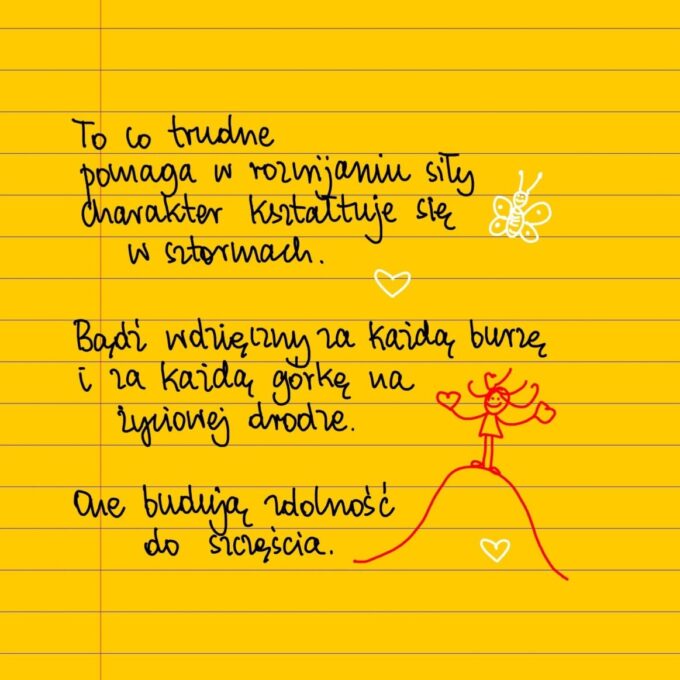 To co trudne
pomaga w rozwijaniu siły
charakter kształtuje się
w sztormach.
Bądź wdzięczny za każdą burzę
i za każdą górkę na
życiowej drodze.
One budują zdolność
do szczęścia.